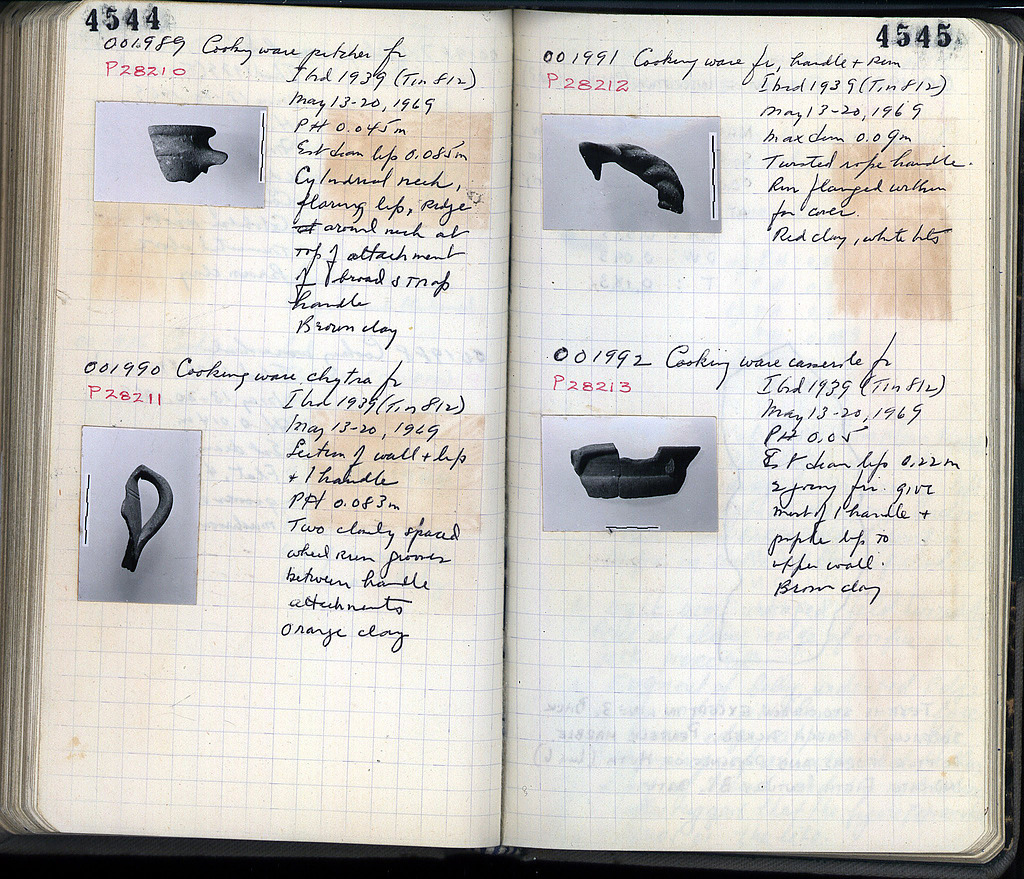 4544
OO1989 Cooking ware pitcher fr
P28210
I brd 1939 (Tin 812)
May 13-20, 1969
PH 0.045m
Est diam lip 0.085m
Cylindrical neck,
flaring lip, ridge
around neck at
top of attachment
of broad strap
handle
Brown clay
OO1990 Cooking ware chytra fr
P28211
I brd 1939 (Tin 812)
May 13-20, 1969
Section of wall + lip
+ 1 handle
PH 0.083m
Two closely spaced
wheel run grooves
between handle
attachments
Orange clay
4545
OO1991 Cooking ware fr, handle + rim
P28212
I brd 1939 (Tin 812)
May 13-20, 1969
Max dim 0.09m
Twisted rope handle.
Rim flanged within
for cover.
Red clay, white bits
OO1992 Cooking ware casserole fr
P28213
I brd 1939 (Tin 812)
May 13-20, 1969
PH 0.05
Est diam lip 0.22m
2 joining frr. give
most of 1 handle +
profile lip to
upper wall.
Brown clay